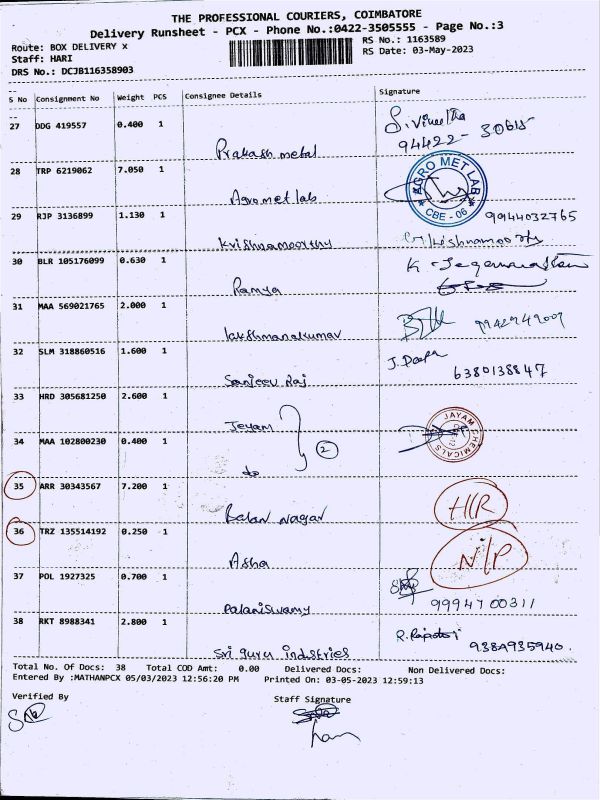 THE PROFESSIONAL COURIERS, COIMBATORE
Delivery Runsheet - PCX - Phone No.:0422-3505555 - Page No.:3
Route: BOX DELIVERY x
RS No.: 1163589
Staff: HARI
RS Date: 03-May-2023
DRS No.: DCJB116358903
S No Consignment No Weight PCS Consignee Details Signature
27 DDG 419557 0.400 1 Prakash metal
94422-
28 TRP 6219062 7.050 1 Agromet lab
AGRO MET LAB
CBE - 06
29 RJP 3136899 1.130 1 Krishnamoorthy
9944032765
30 BLR 105176099 0.630 1 Ramya
31 MAA 569021765 2.000 1 lakshmanakumar
32 SLM 318860516 1.600 1 Sanjeev Raj
J. Deepa
6380138847
33 HRD 305681250 2.600 1 Jeyam
JAYAM CHEMICALS
34 MAA 102800230 0.400 1 do
2
35 ARR 30343567 7.200 1 Balan nagar
36 TRZ 135514192 0.250 1 Asha
N/P
37 POL 1927325 0.700 1 Palaniswamy
9994700311
38 RKT 8988341 2.800 1 Sri guru industries
Total No. Of Docs: 38 Total COD Amt: 0.00 Delivered Docs: Non Delivered Docs:
Entered By :MATHANPCX 05/03/2023 12:56:20 PM Printed On: 03-05-2023 12:59:13
Verified By
Staff Signature